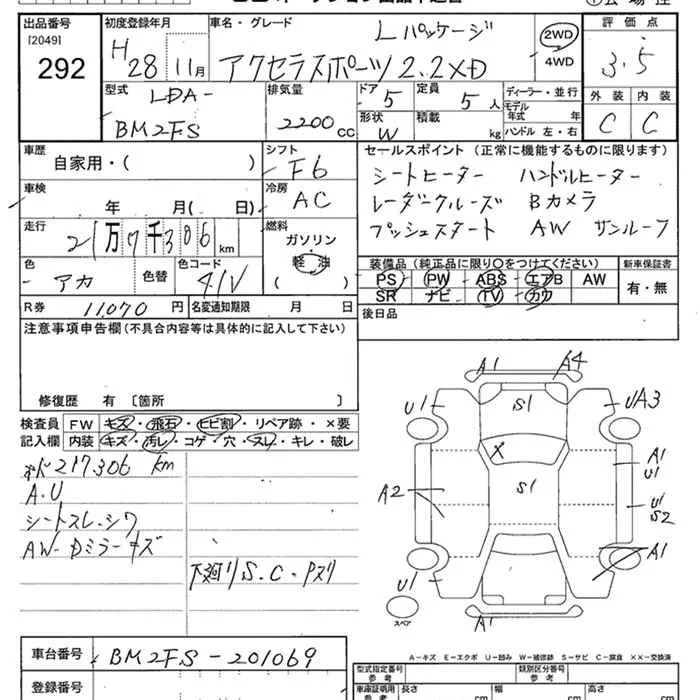 出品番号 初度登録年月 車名・グレード Lパッケージ 2WD 4WD 評価点
[2049] 292 H28 11月 アクセラスポーツ 2.2XD 3.5
型式 LDA-BM2FS 排気量 2200cc ドア 5 定員 5人 ディーラー・並行 外装 内装
形状 W 積載 kg モデル年式 年式 ハンドル 左・右 C C
車歴 自家用・( ) シフト F6 セールスポイント(正常に機能するものに限ります)
車検 年 月( 日) 冷房 AC シートヒーター ハンドルヒーター
レーダークルーズ Bカメラ
走行 21万7千306km 燃料 ガソリン プッシュスタート AW サンルーフ
軽油
( )
色 アカ 色替 色コード 41V 装備品(純正品に限り○をつけてください) 新車保証書
PS PW ABS エアB AW 有・無
SR ナビ TV カワ
R券 11,070円 名変通知期限 月 日 後日品
注意事項申告欄(不具合内容等は具体的に記入して下さい)
修復歴 有〔箇所 〕
検査員 FW キズ・飛石・ヒビ割・リペア跡・×要
記入欄 内装 キズ・汚レ・コゲ・穴・スレ・キレ・破レ
217,306 km
A.U
シートスレ.シワ
AW-Dミラーキズ
下廻りS.C.Pスリ
A1 A4
U1 S1 UA3
X A1
U1
A2 S1 U1
S2
U1 A1
スペア A1
A-キズ E-エクボ U-凹み W-補修跡 S-サビ C-腐食 XX-交換済
車台番号 BM2FS-201069 型式指定番号 参考 類別区分番号 参考
登録番号 車庫証明用 参考 長さ cm 幅 cm 高さ cm